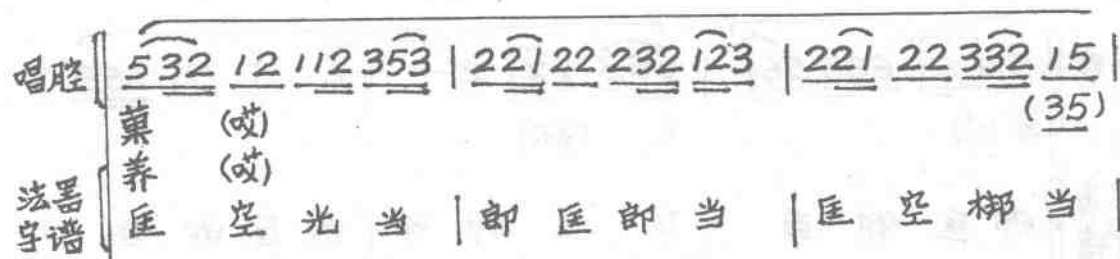 唱腔 532 12 112 353 | 221 22 232 123 | 221 22 332 15 |
(35)
菓 (哎)
养 (哎)
法器字谱 匡 空 光 当 | 郎 匡 郎 当 | 匡 空 梆 当 |